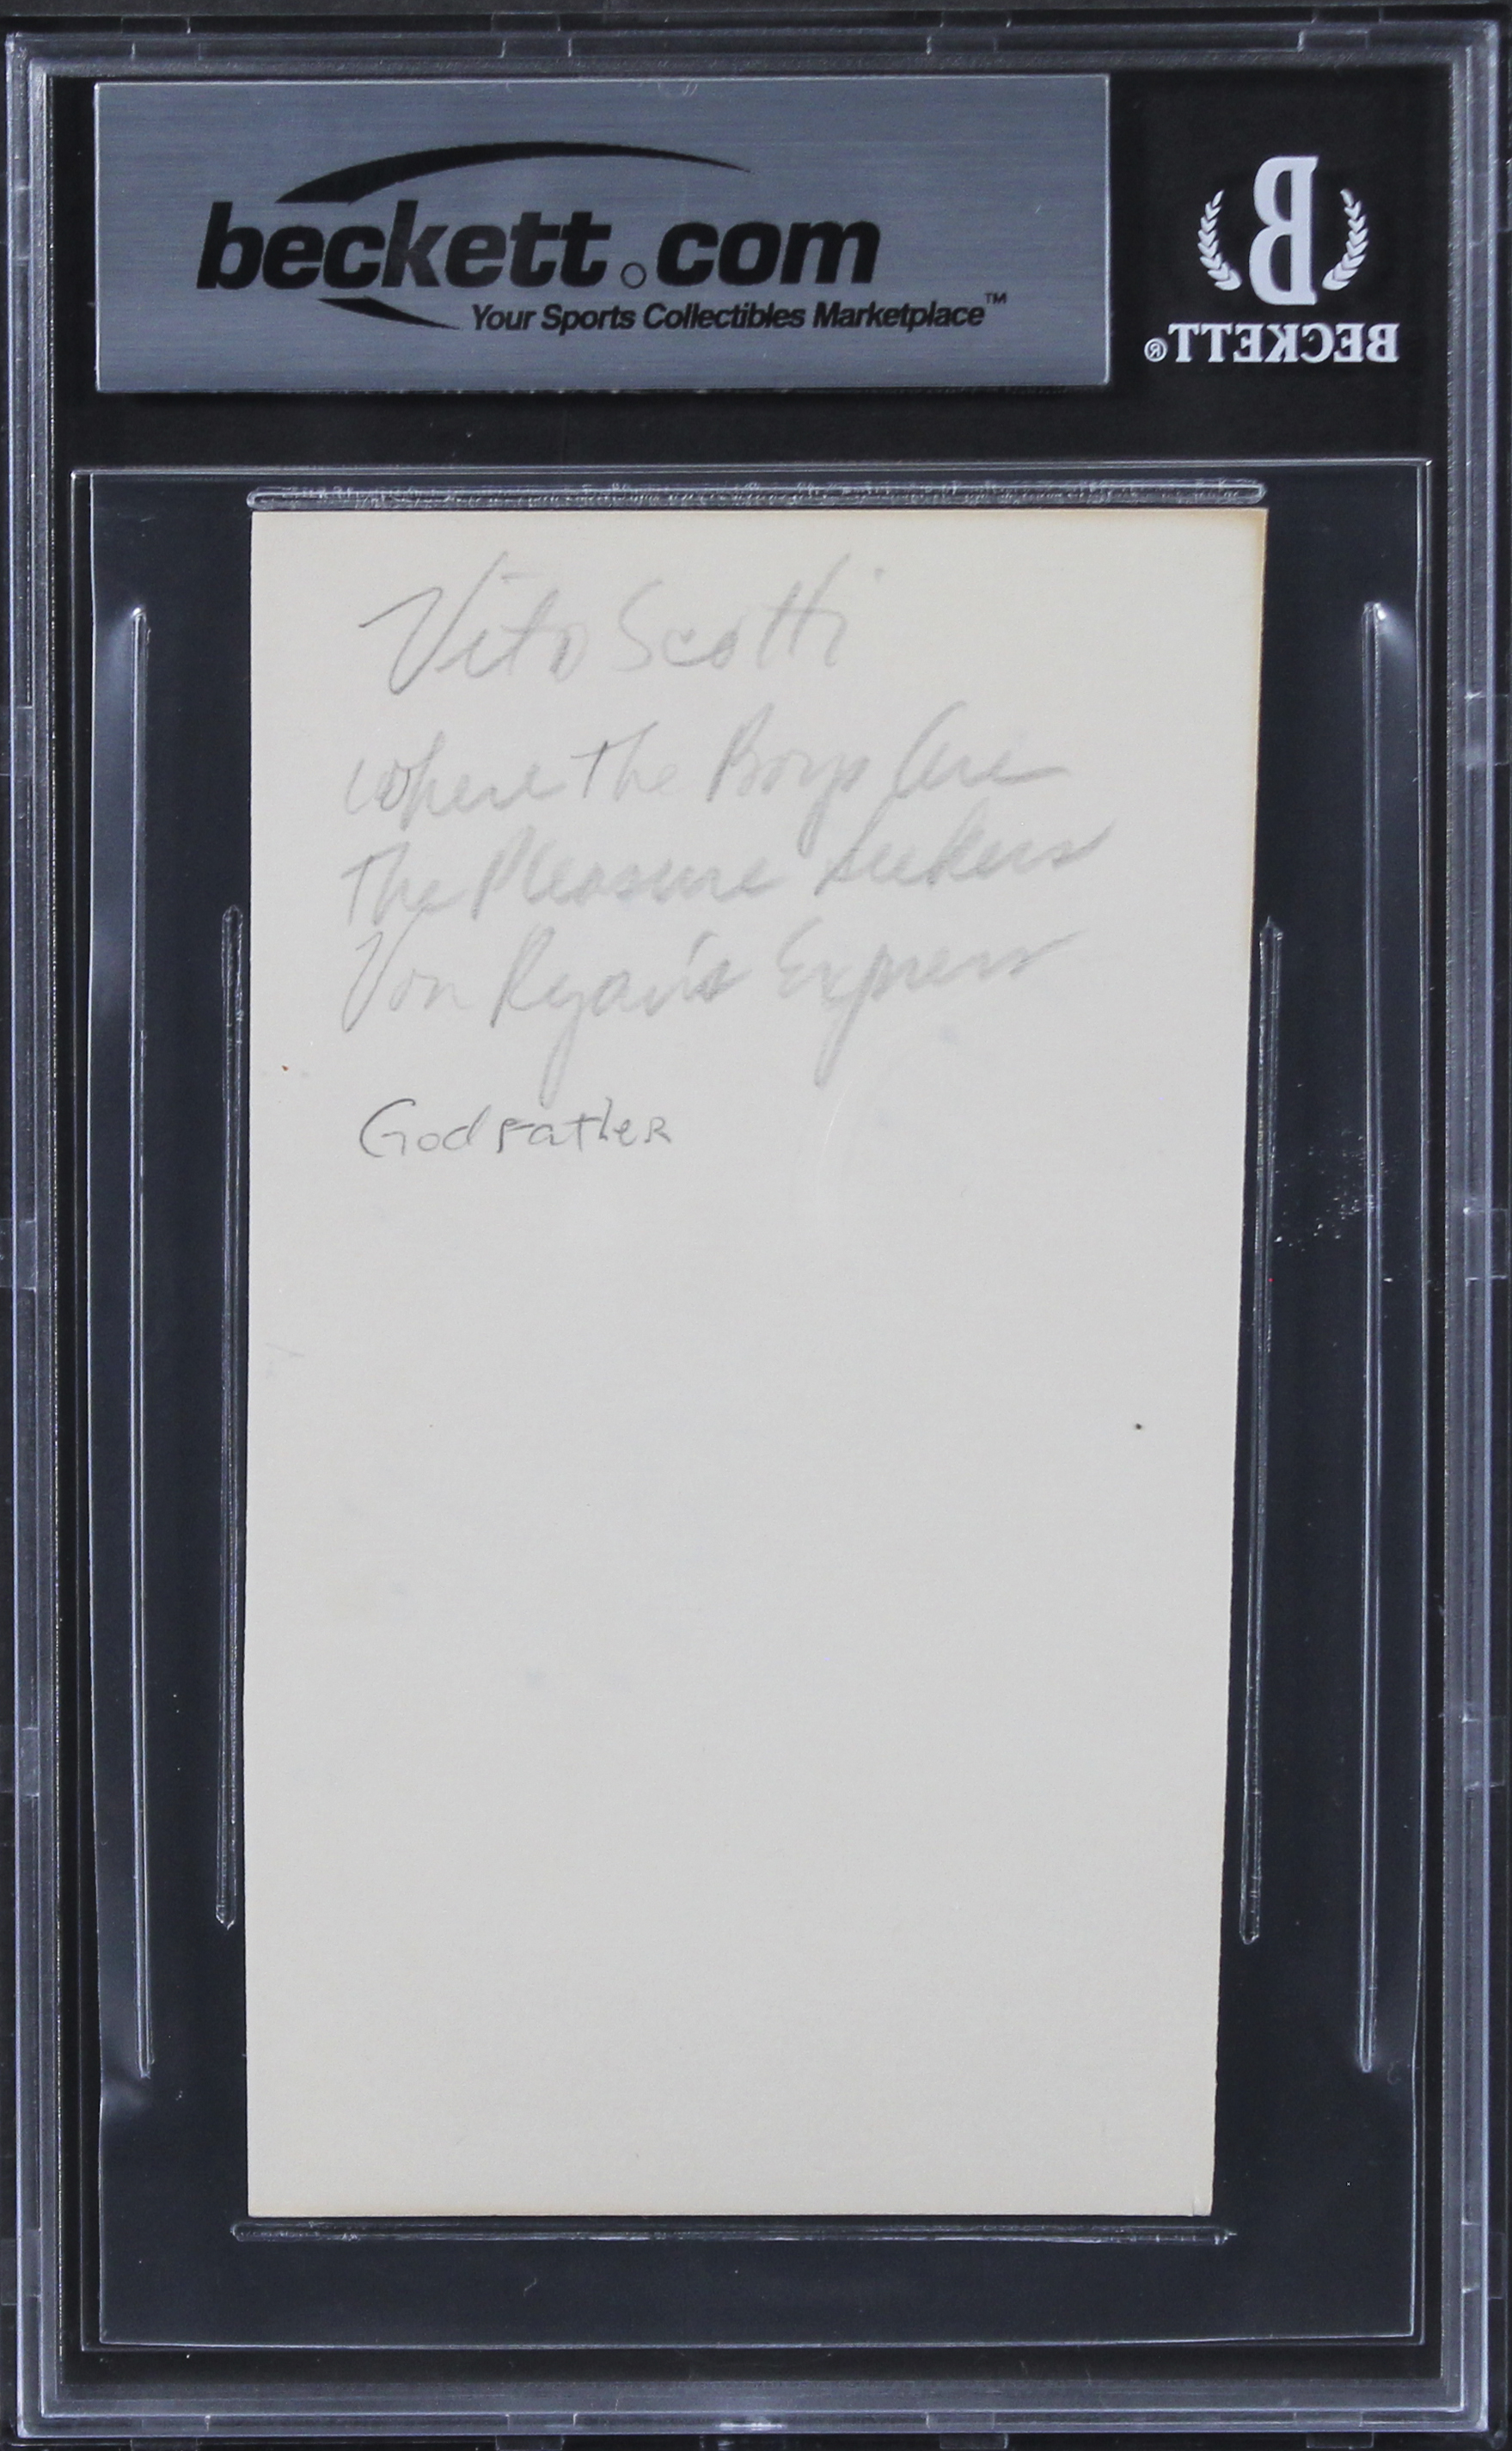 beckett.com
Your Sports Collectibles Marketplace™
BECKETT®
Vito Scotti
Where The Boys Are
The Pleasure Seekers
Von Ryan's Express
Godfather